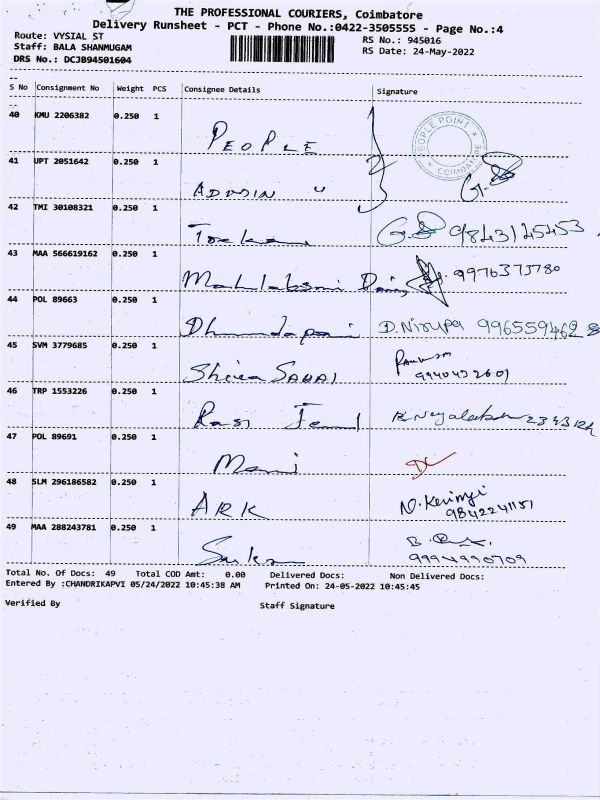 THE PROFESSIONAL COURIERS, Coimbatore
Delivery Runsheet - PCT - Phone No.:0422-3505555 - Page No.:4
Route: VYSIAL ST
RS No.: 945016
Staff: BALA SHANMUGAM
RS Date: 24-May-2022
DRS No.: DCJB94501604
S No Consignment No Weight PCS Consignee Details Signature
40 KMU 2206382 0.250 1 PEOPLE
PEOPLE POINT
41 UPT 2051642 0.250 1
42 TMI 30108321 0.250 1 9843125453
43 MAA 566619162 0.250 1 9976373780
44 POL 89663 0.250 1 D.Nirupa
45 SVM 3779685 0.250 1
9940432601
46 TRP 1553226 0.250 1
47 POL 89691 0.250 1 Mani
48 SLM 296186582 0.250 1 ARK
9842241151
49 MAA 288243781 0.250 1
9994990709
Total No. Of Docs: 49 Total COD Amt: 0.00 Delivered Docs: Non Delivered Docs:
Entered By :CHANDRIKAPVI 05/24/2022 10:45:38 AM Printed On: 24-05-2022 10:45:45
Verified By Staff Signature